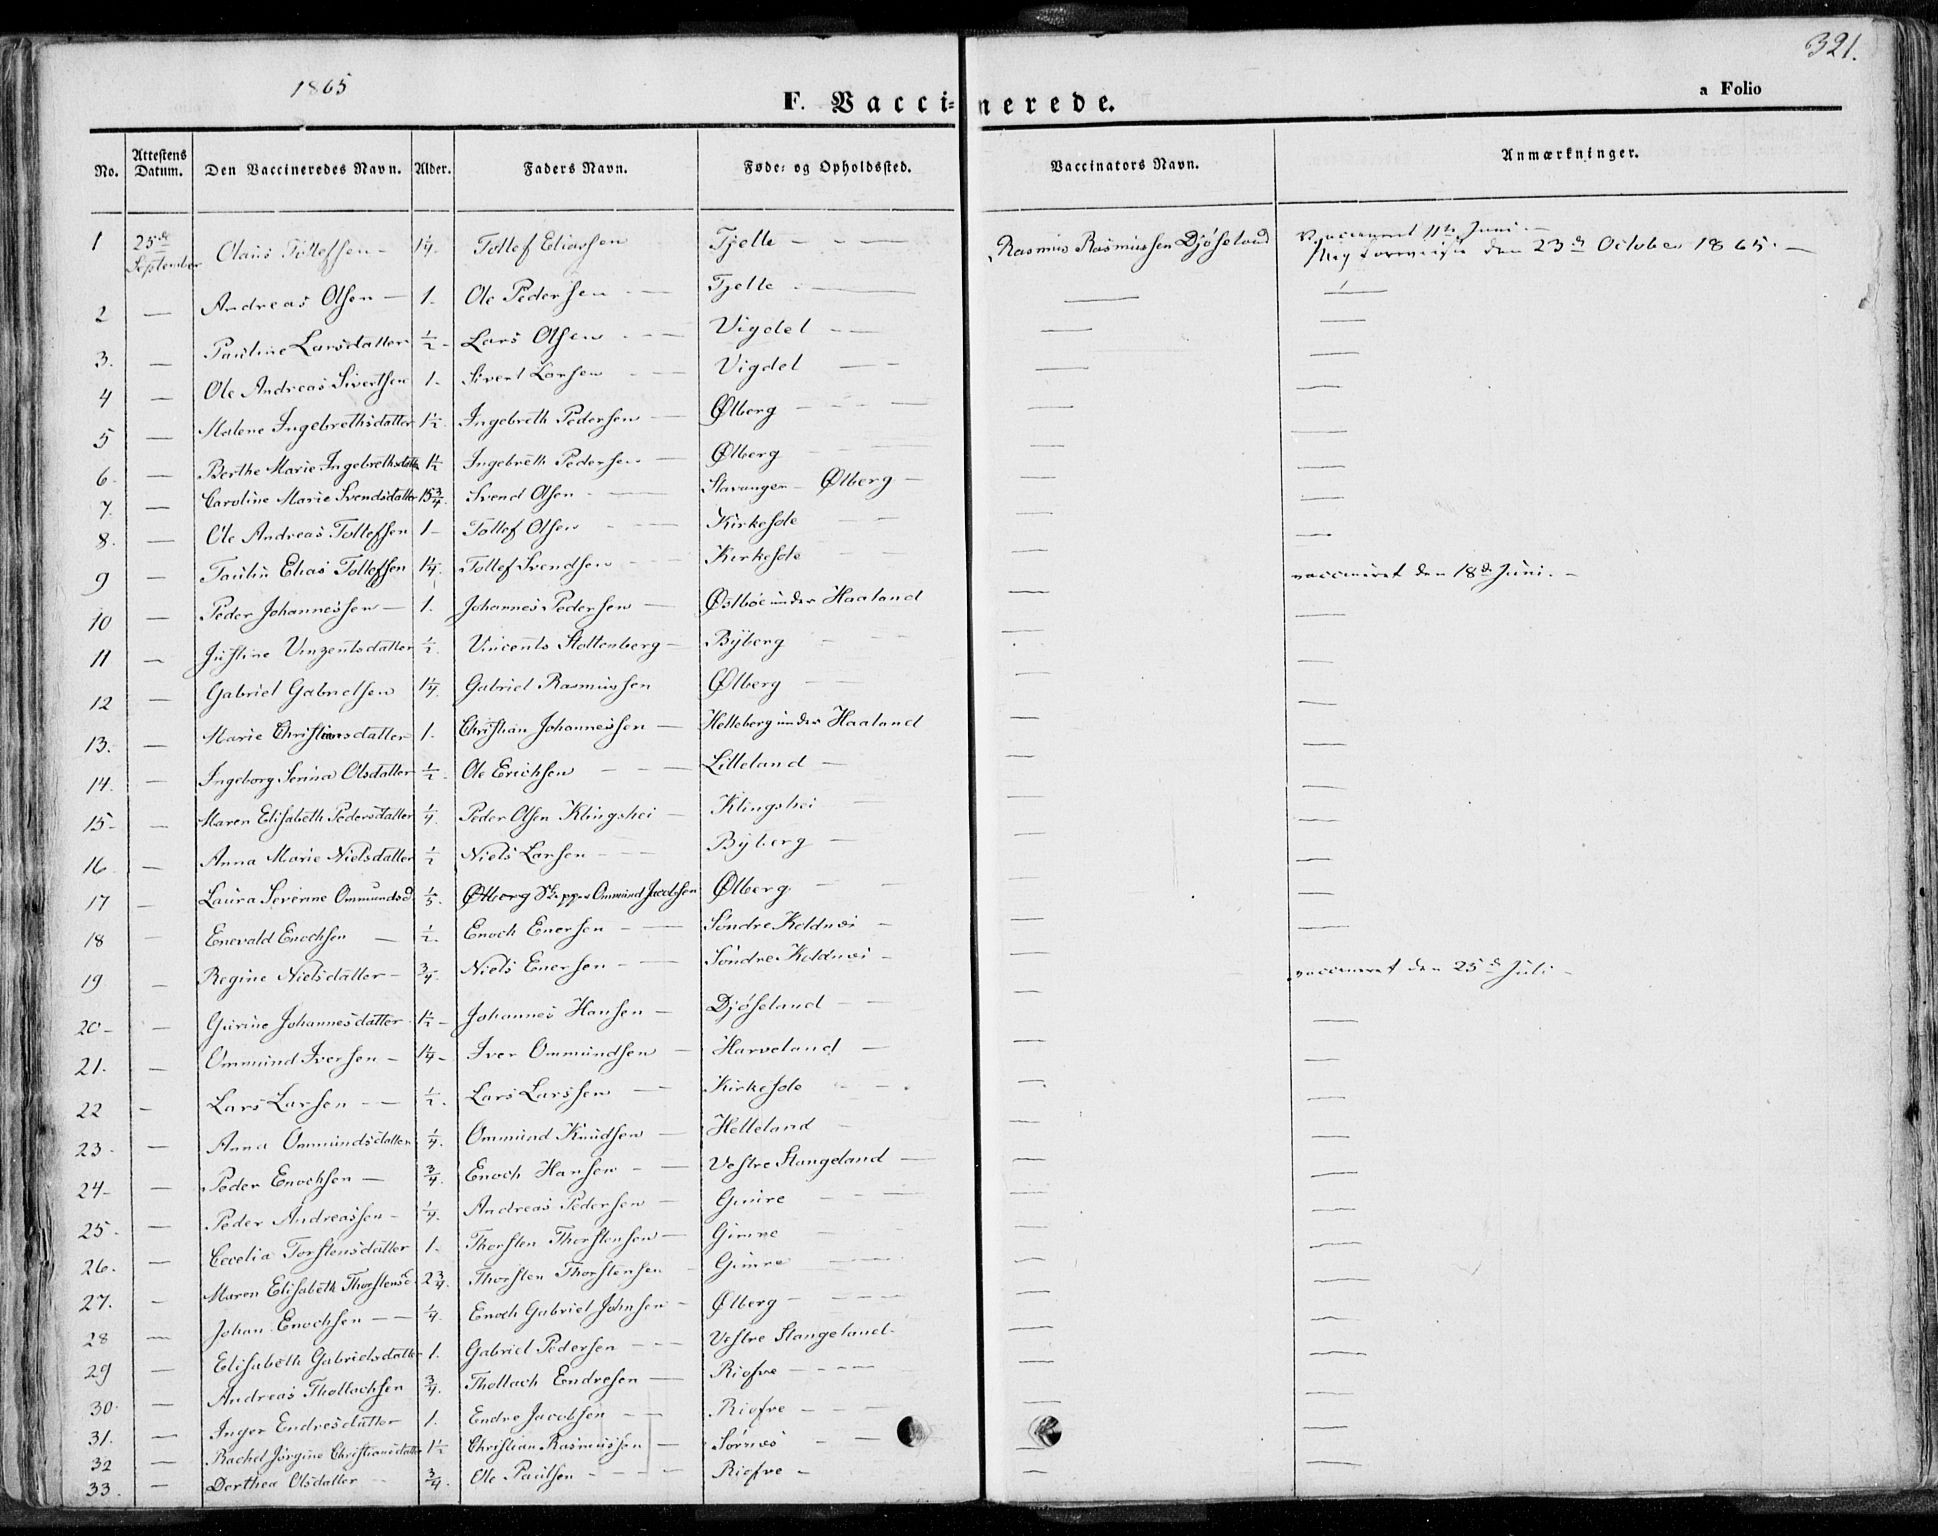 321.
1865
F. Vaccinerede.
a Folio
No. Attestens Datum. Den Vaccineredes Navn. Alder. Faders Navn. Føde- og Opholdssted. Vaccinators Navn. Anmærkninger.
1 25de September Olaus Tollefsen - 1¼. Tollef Eliassen Tjelte - - Rasmus Rasmussen Djøseland Vaccineret 11te Juni. -
den 23de October 1865. -
2 — Andreas Olsen — 1. Ole Pedersen — Tjelte — — —
3. — Pauline Larsdatter ½ - Lars Olsen - — Vigdel - — — —
4 — Ole Andreas Sivertsen 1. Sivert Larsen - — Vigdel — — —
5 — Malene Ingebrethsdatter 1½. Ingebreth Pedersen — Ølberg - - — — —
6. — Berthe Marie Ingebrethsdatter 1½ Ingebreth Pedersen — Ølberg — —
7. — Caroline Marie Svendsdatter 15¾. Svend Olsen - — Stavanger - Ølberg — — —
8. — Ole Andreas Tollefsen 1 - Tollef Olsen - — Kirkesole — —
9 — Paulin Elias Tollefsen 1¼. Tollef Svendsen - — Kirkesole — vaccineret den 18de Juni. -
10 — Peder Johannessen — 1. Johannes Pedersen — Østbøe under Haaland — —
11 — Justine Vinzentsdatter ½. Vincents Stoltenberg — Byberg — —
12 — Gabriel Gabrielsen 1¼. Gabriel Rasmussen Ølberg — — —
13. — Marie Christiansdatter 1. Christian Johannessen — Helleberg under Haaland — —
14. — Ingeborg Serina Olsdatter ½. Ole Erichsen - — Lilleland — — —
15 - — Maren Elisabeth Pedersdatter ¼. Peder Olsen Klingshei — Klingshei — — —
16. — Anna Marie Nielsdatter ½ Niels Larsen - - Byberg — — —
17 — Laura Serine Ommundsd ⅕. Ølberg Skipper Ommund Jacobsen Ølberg. — —
18 — Enevald Enochsen — ½. Enoch Enersen - — Søndre Koldnæs — — —
19 — Regine Nielsdatter - ¾. Niels Enersen - — Søndre Koldnæs - — vaccineret den 25de Juli -
20 - — Gurine Johannesdatter 1½ - Johannes Hansen — Djøseland — — —
21. — Ommund Iversen - 1¼ - Iver Ommundsen — Harveland — — —
22 - Lars Larsen - — ½. Lars Larssen — Kirkesole - — —
23 - — Anna Ommundsdatter ¼. Ommund Knudsen — Helleland — — —
24 - — Peder Enochsen — ¾. Enoch Hansen - — Vestre Stangeland — — —
25 - — Peder Andreassen - ¼. Andreas Pedersen — Gimre - - — — —
26. — Cecelia Torstensdatter 1. Thorsten Thorstensen — Gimre — — —
27. - Maren Elisabeth Thorstensd 2¾. Thorsten Thorstensen Gimre — — —
28 — Johan Enochsen - — ¼. Enoch Gabriel Johnsen - Ølberg - - — — —
29 — Elisabeth Gabrielsdatter 1. Gabriel Pedersen - - Vestre Stangeland. — —
30. — Andreas Thollachsen ¾. Thollach Endresen — Riofre - - - — —
31. — Inger Endresdatter 1. Endre Jacobsen - - Riofre - - - — —
32 — Rachel Jørgine Christiansdatter 1½ Christian Rasmussen — Sørnes - — — —
33. — Dorthea Olsdatter - ¾. Ole Paulsen - - - Riofre - — —